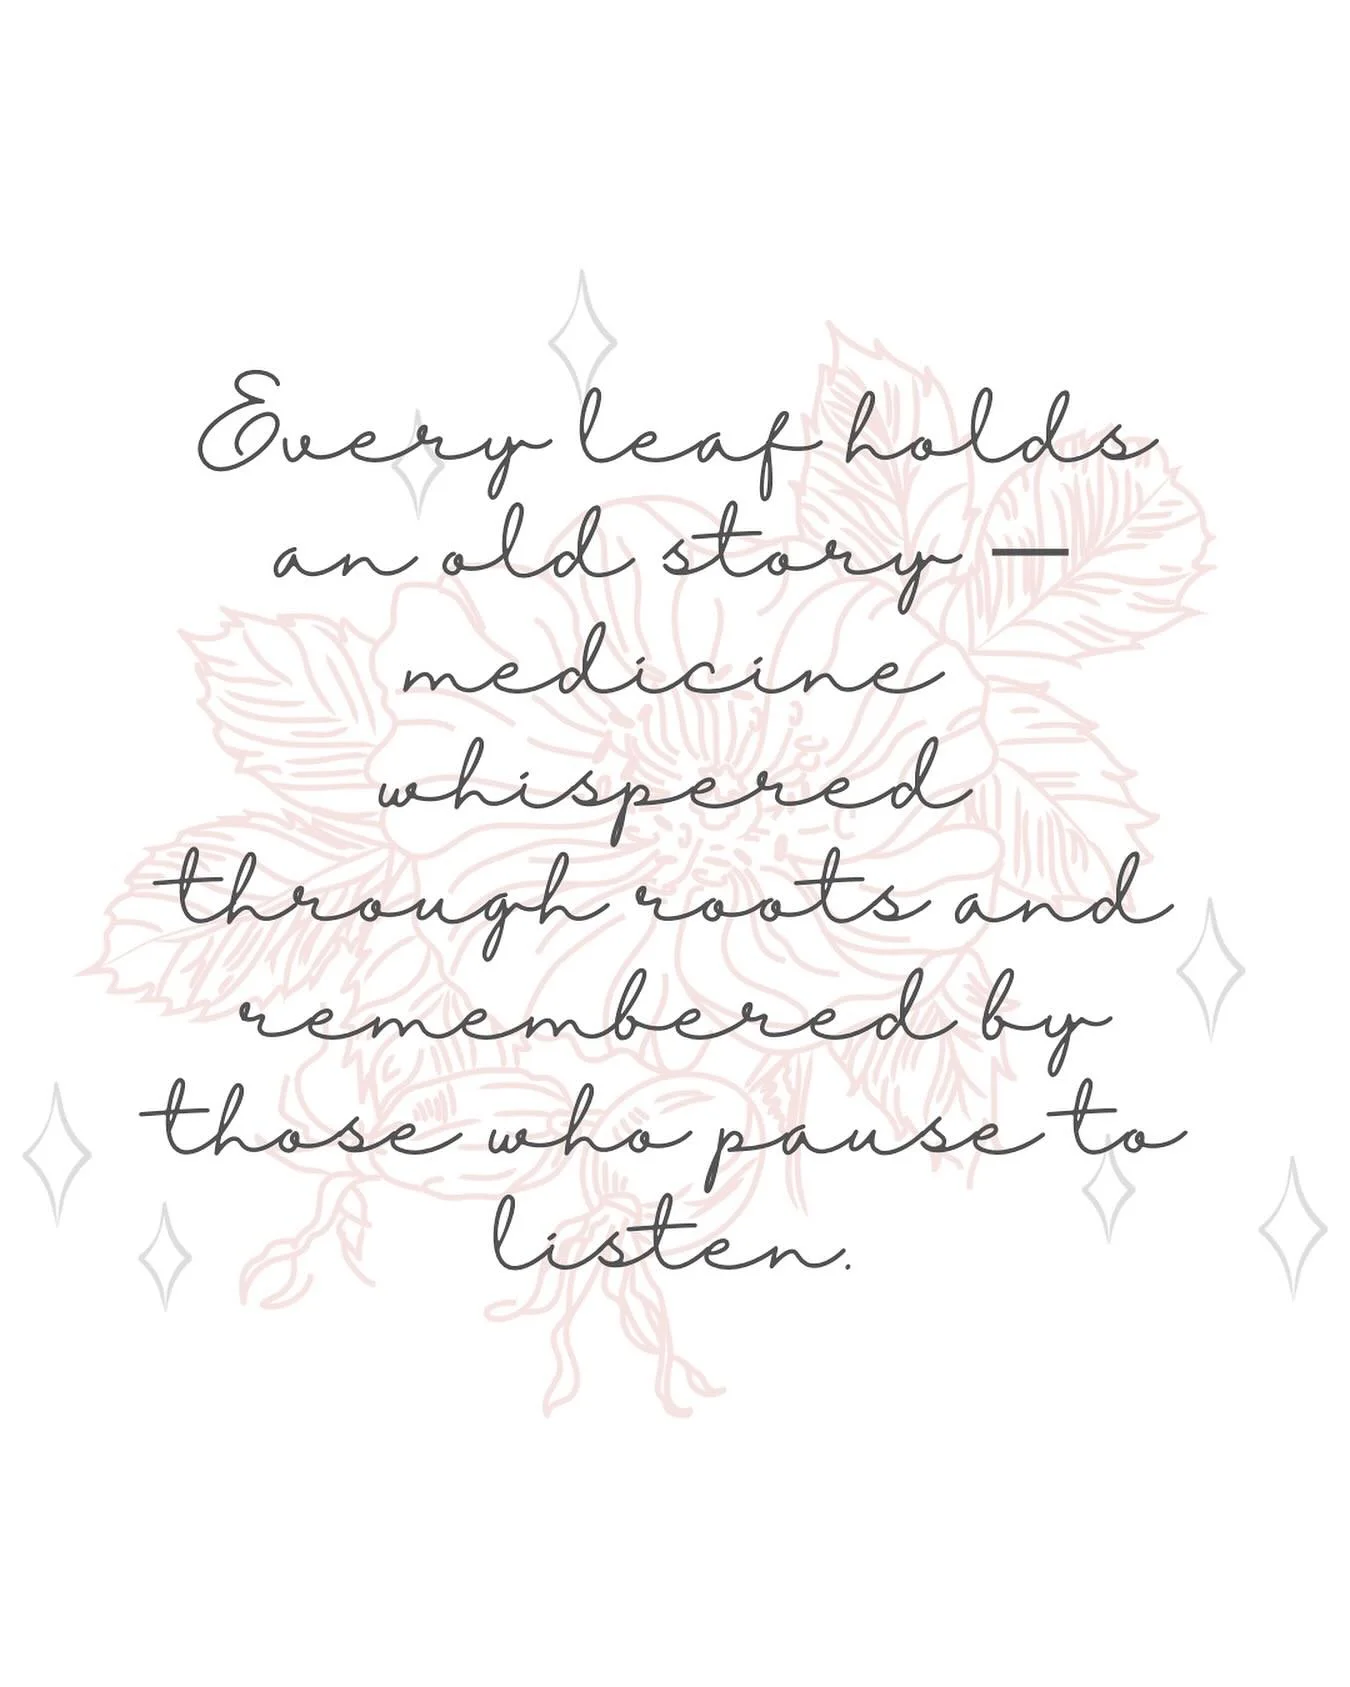 Every leaf holds
an old story —
medicine
whispered
through roots and
remembered by
those who pause to
listen.